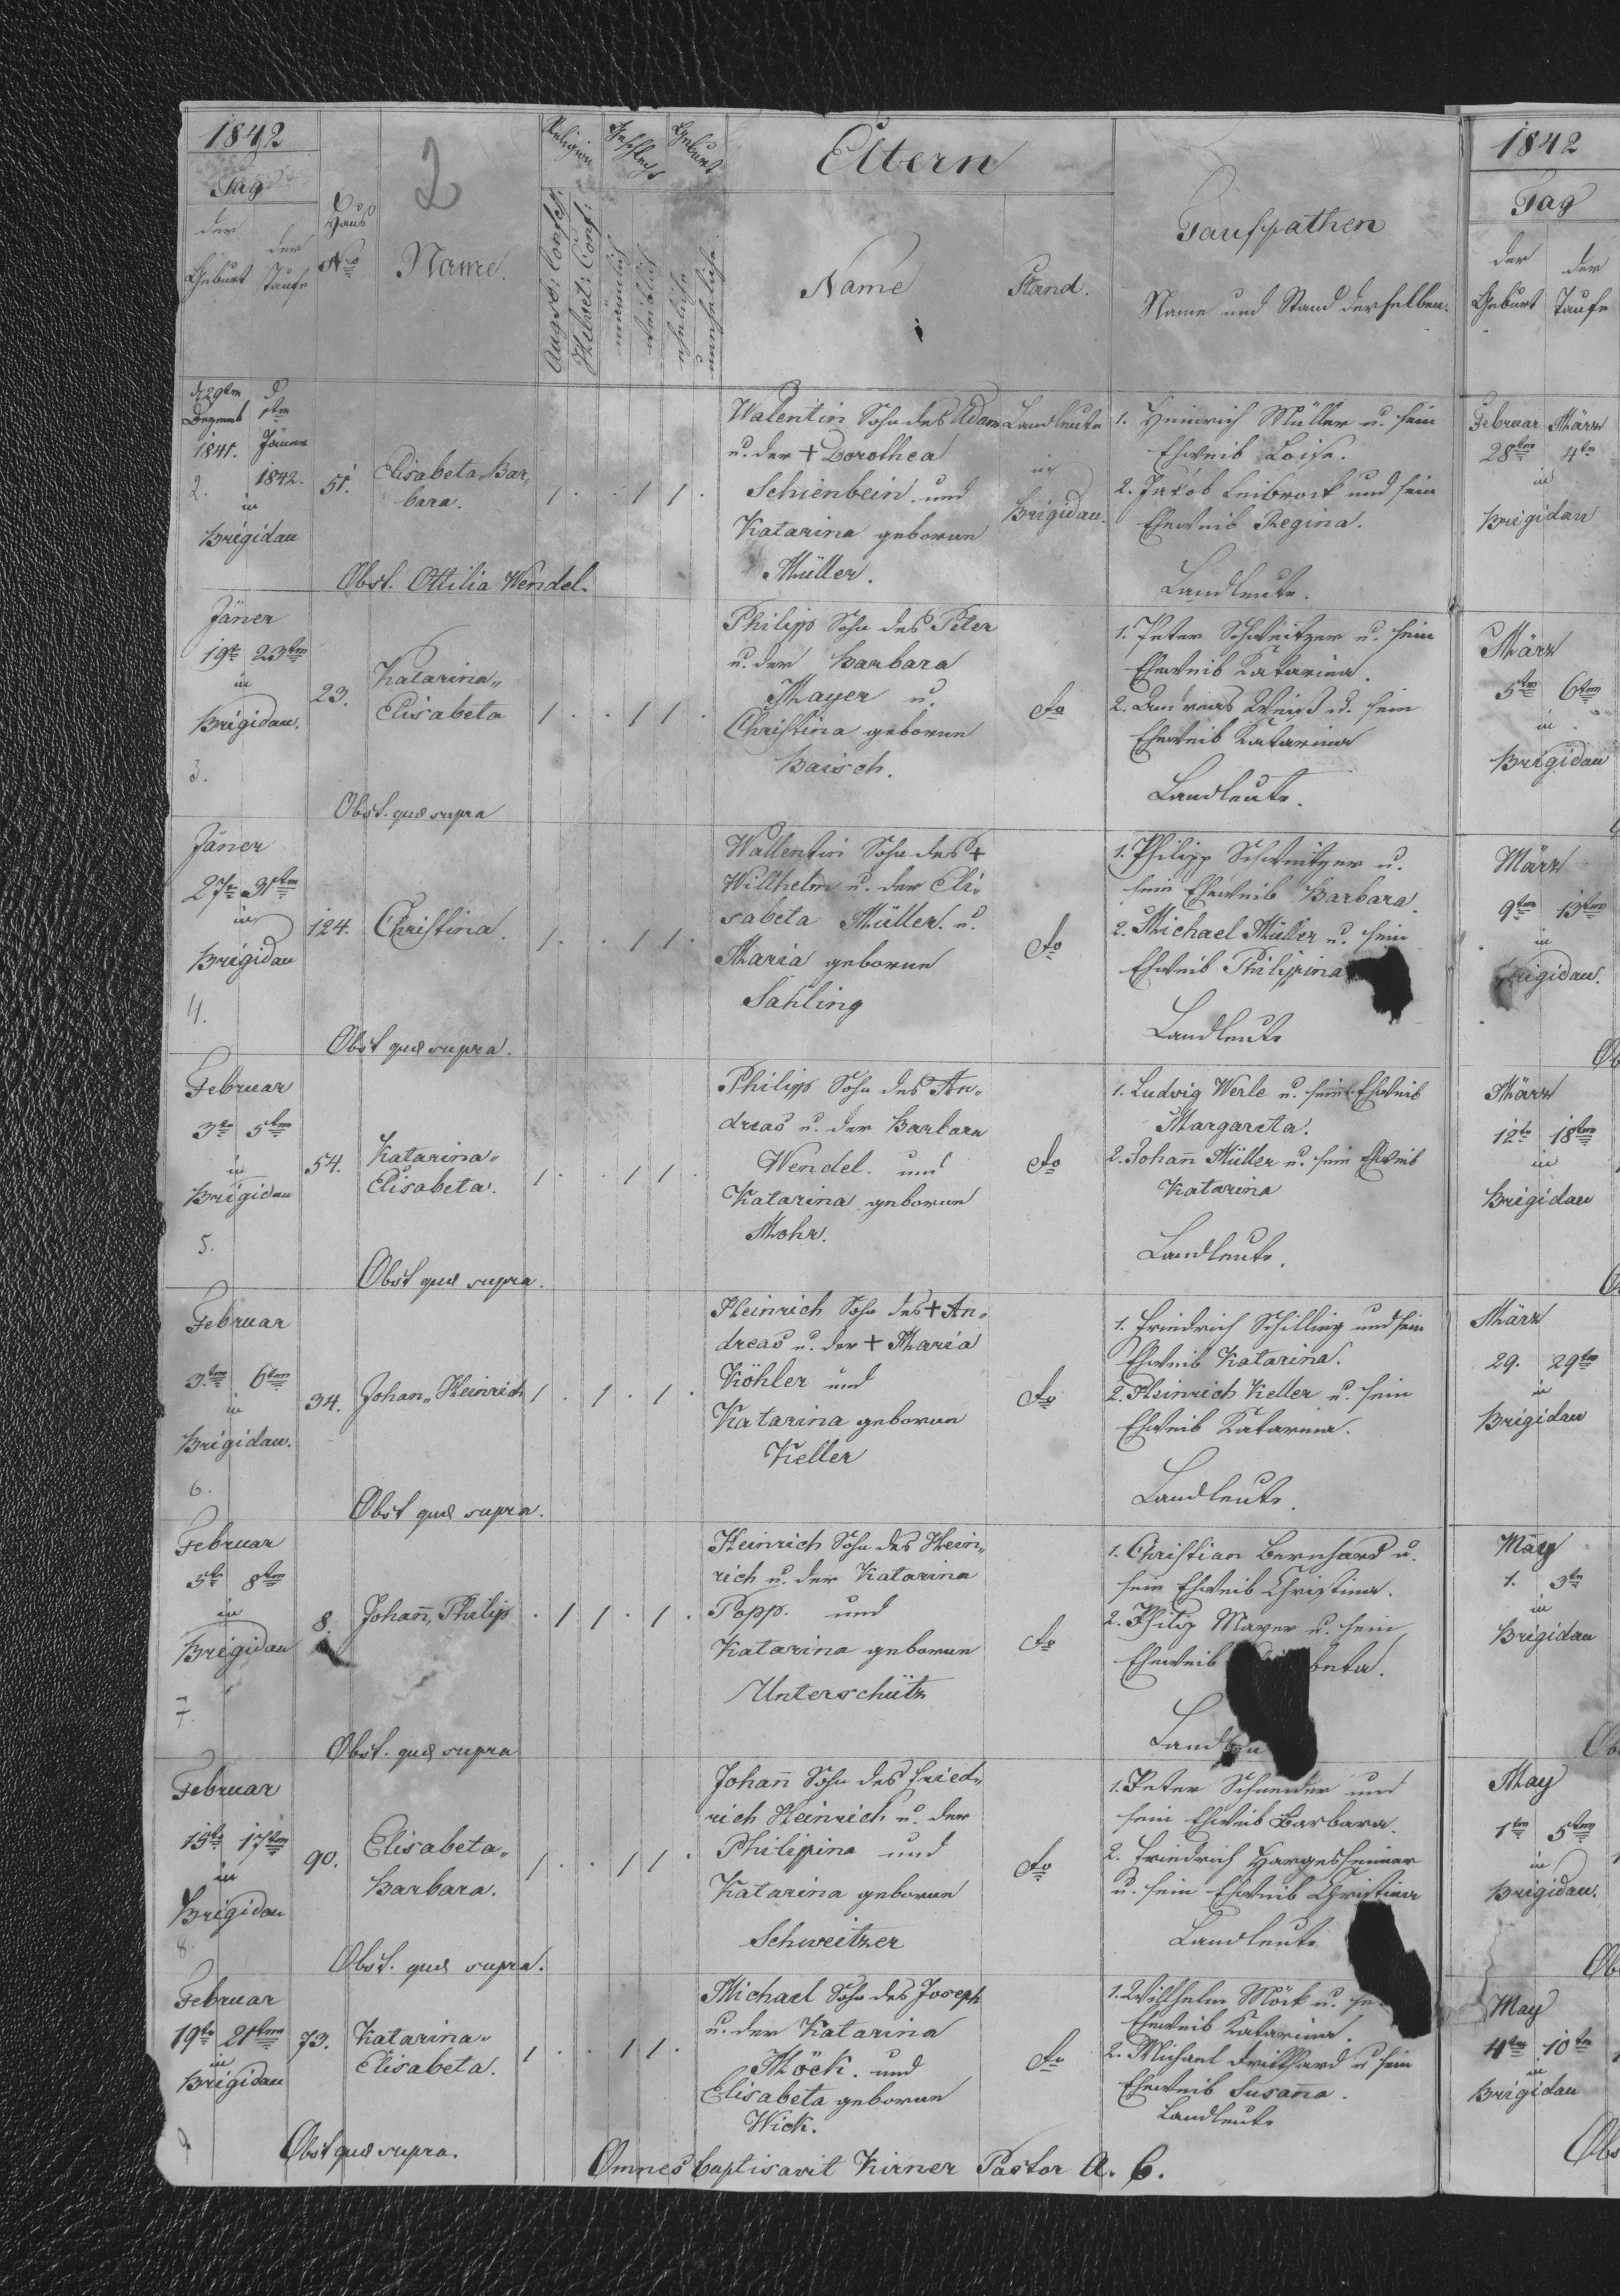 1842
Tag
der Geburt
der Taufe
Haus
Nro
2
Name.
Religion
Augsb: Confess:
Helvet: Conf:
Geschlecht
männlich
weiblich
Geburt
eheliche
unneheliche
Eltern
Name
Stand.
Taufpathen
Name und Stand derselben.
d 29ten
Dezemb
1841.
d
1ten
Jäner
1842.
2.
in
Brigidau
51.
Elisabeta, Bar-
bara.
1 . . 1 1 .
Obst. Ottilia Wendel.
Walentin Sohn des Adam
u. der + Dorothea
Schienbein und
Katarina geborene
Müller.
Landleute
in
Brigidau.
1. Heinrich Müller u. sein
Eheweib Loise.
2. Jakob Leibrock und sein
Eheweib Regina.
Landleute.
Jäner
19te 23ten
in
Brigidau.
3.
23.
Katarina„
Elisabeta
1 . . 1 1 .
Obst. quæ supra
Philipp Sohn des Peter
u. der Barbara
Mayer u.
Christina geborene
Baisch.
do
1. Peter Schweitzer u. sein
Eheweib Katarina.
2. Andreas Weiß u. sein
Eheweib Katarina
Landleute.
Jäner
27te 31ten
in
Brigidau
4.
124.
Christina.
1 . . 1 1 .
Obst quæ supra.
Wallentin Sohn des +
Willhelm u. der Eli-
sabeta Müller. u.
Maria geborene
Sahling
do
1. Philipp Schweitzer u.
sein Eheweib Barbara.
2. Michael Müller u. sein
Eheweib Philippina
Landleute
Februar
3te 5ten
in
Brigidau
5.
54.
Katarina„
Elisabeta.
1 . . 1 1 .
Obst quæ supra.
Philipp Sohn des An-
dreas u. der Barbara
Wendel. und
Katarina geborene
Mohr.
do
1. Ludwig Werle u. sein Eheweib
Margareta.
2. Johann Müller u. sein Eheweib
Katarina
Landleute.
Februar
3ten 6ten
in
Brigidau.
6.
34.
Johan„ Heinrich
1 . 1 . 1 .
Obst quæ supra.
Heinrich Sohn des + An-
dreas u. der + Maria
Köhler und
Katarina geborene
Keller
do
1. Friedrich Schilling und sein
Eheweib Katarina.
2. Heinrich Keller u. sein
Eheweib Katarina.
Landleute.
Februar
5te 8ten
in
Brigidau
7.
8.
Johann, Philip
. 1 1 . 1 .
Obst. quæ supra
Heinrich Sohn des Hein-
rich u. der Katarina
Popp. und
Katarina geborene
Unterschütz
do
1. Christian Bernhard u.
sein Eheweib Christina.
2. Philip Mayer u. sein
Eheweib beta.
Landleu
Februar
15te 17ten
in
Brigidau
8.
90.
Elisabeta„
Barbara.
1 . . 1 1 .
Obst. quæ supra.
Johann Sohn des Fried-
rich Heinrich u. der
Philipina und
Katarina geborene
Schweitzer
do
1. Peter Schneider und
sein Eheweib Barbara.
2. Friedrich Hargesheimer
u. sein Eheweib Christina
Landleute
Februar
19te 21ten
in
Brigidau
9
73.
Katarina„
Elisabeta.
1 . . 1 1 .
Obst quæ supra.
Michael Sohn des Joseph
u. der Katarina
Möck. und
Elisabeta geborene
Wick.
do
1. Willhelm Möck u. se
Eheweib Katarina.
2. Michael u sein
Eheweib Susanna.
Landleute
Omnes baptisavit Kirner Pastor A. C.
1842
Tag
der Geburt
der Taufe
Februar März
28ten 4ten
in
Brigidau
März
5ten 6ten
in
Brigidau
März
9ten 13ten
in
rigidau.
März
12te 18ten
in
Brigidau
März
29. 29ten
in
Brigidau
May
1. 3ten
in
Brigidau
May
1ten 5ten
in
Brigidau.
May
4ten 10ten
in
Brigidau
Obs